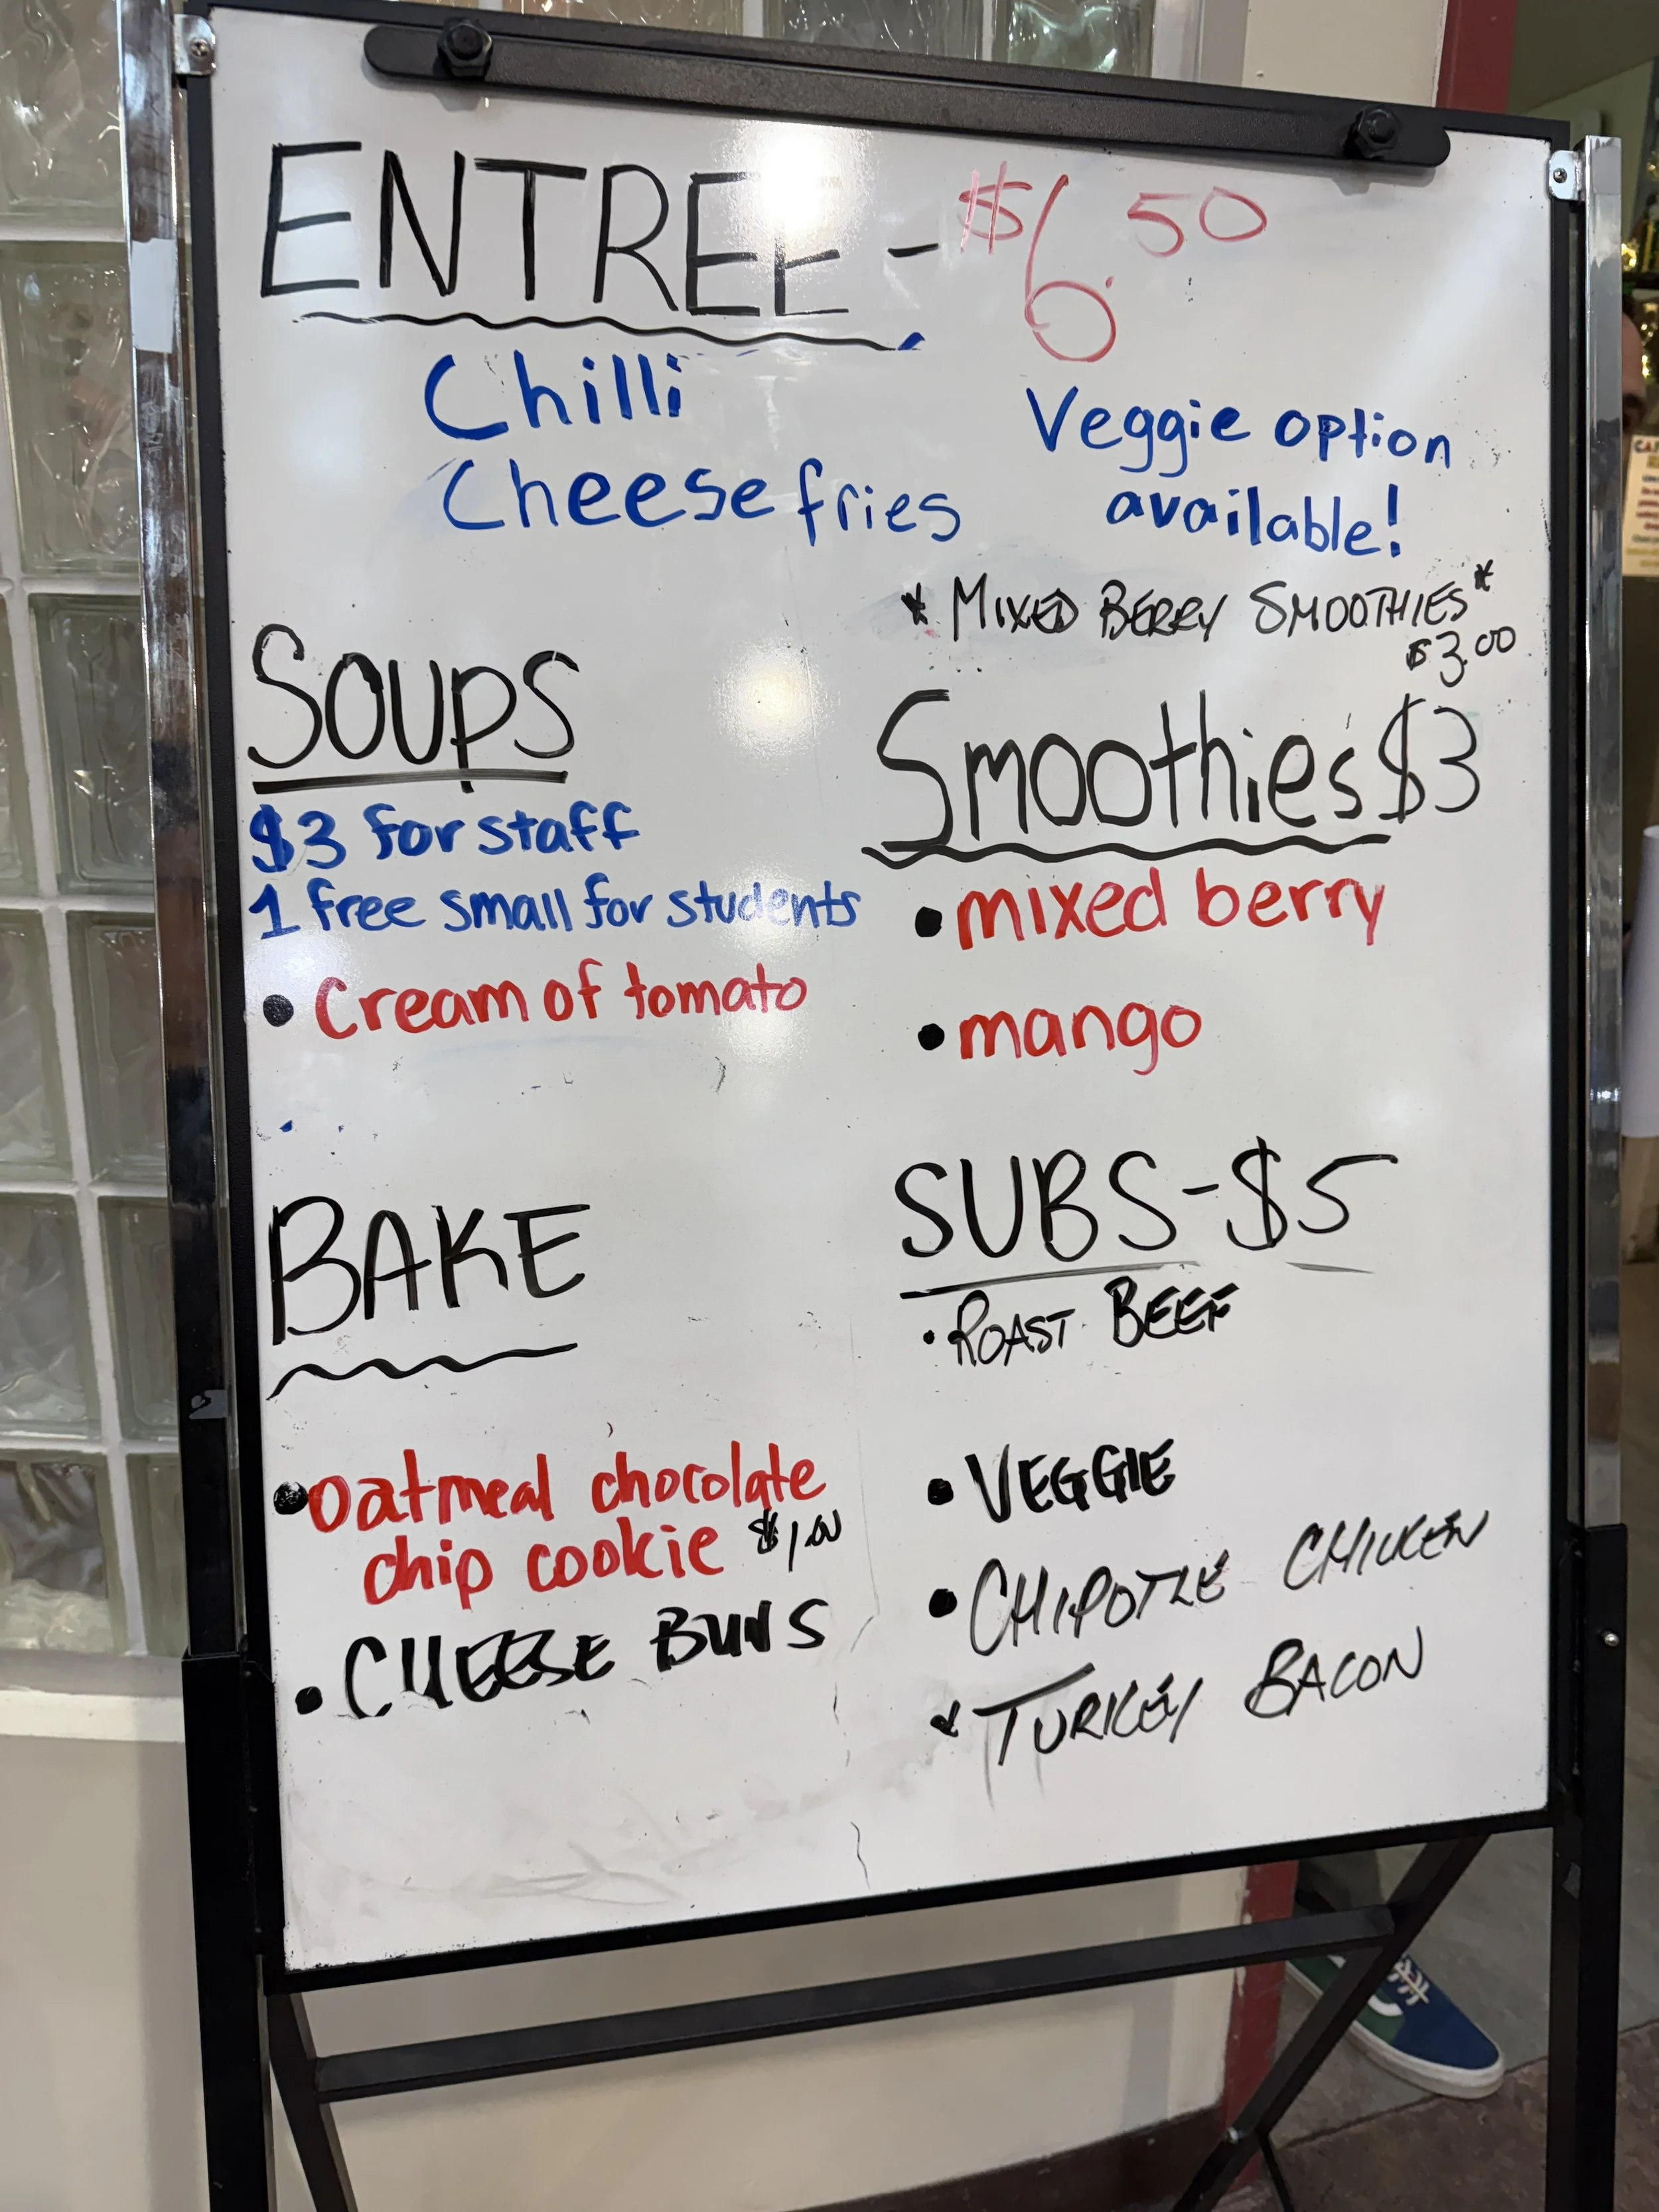 ENTREE - $6.50
Chilli
Cheese fries
Veggie option
available!
* MIXED BERRY SMOOTHIES *
$3.00
SOUPS
$3 for staff
1 free small for students
• Cream of tomato
Smoothies $3
• mixed berry
• mango
BAKE
• Oatmeal chocolate
chip cookie $1.00
• CHEESE BUNS
SUBS - $5
• ROAST BEEF
• VEGGIE
• CHIPOTLE CHICKEN
• TURKEY BACON